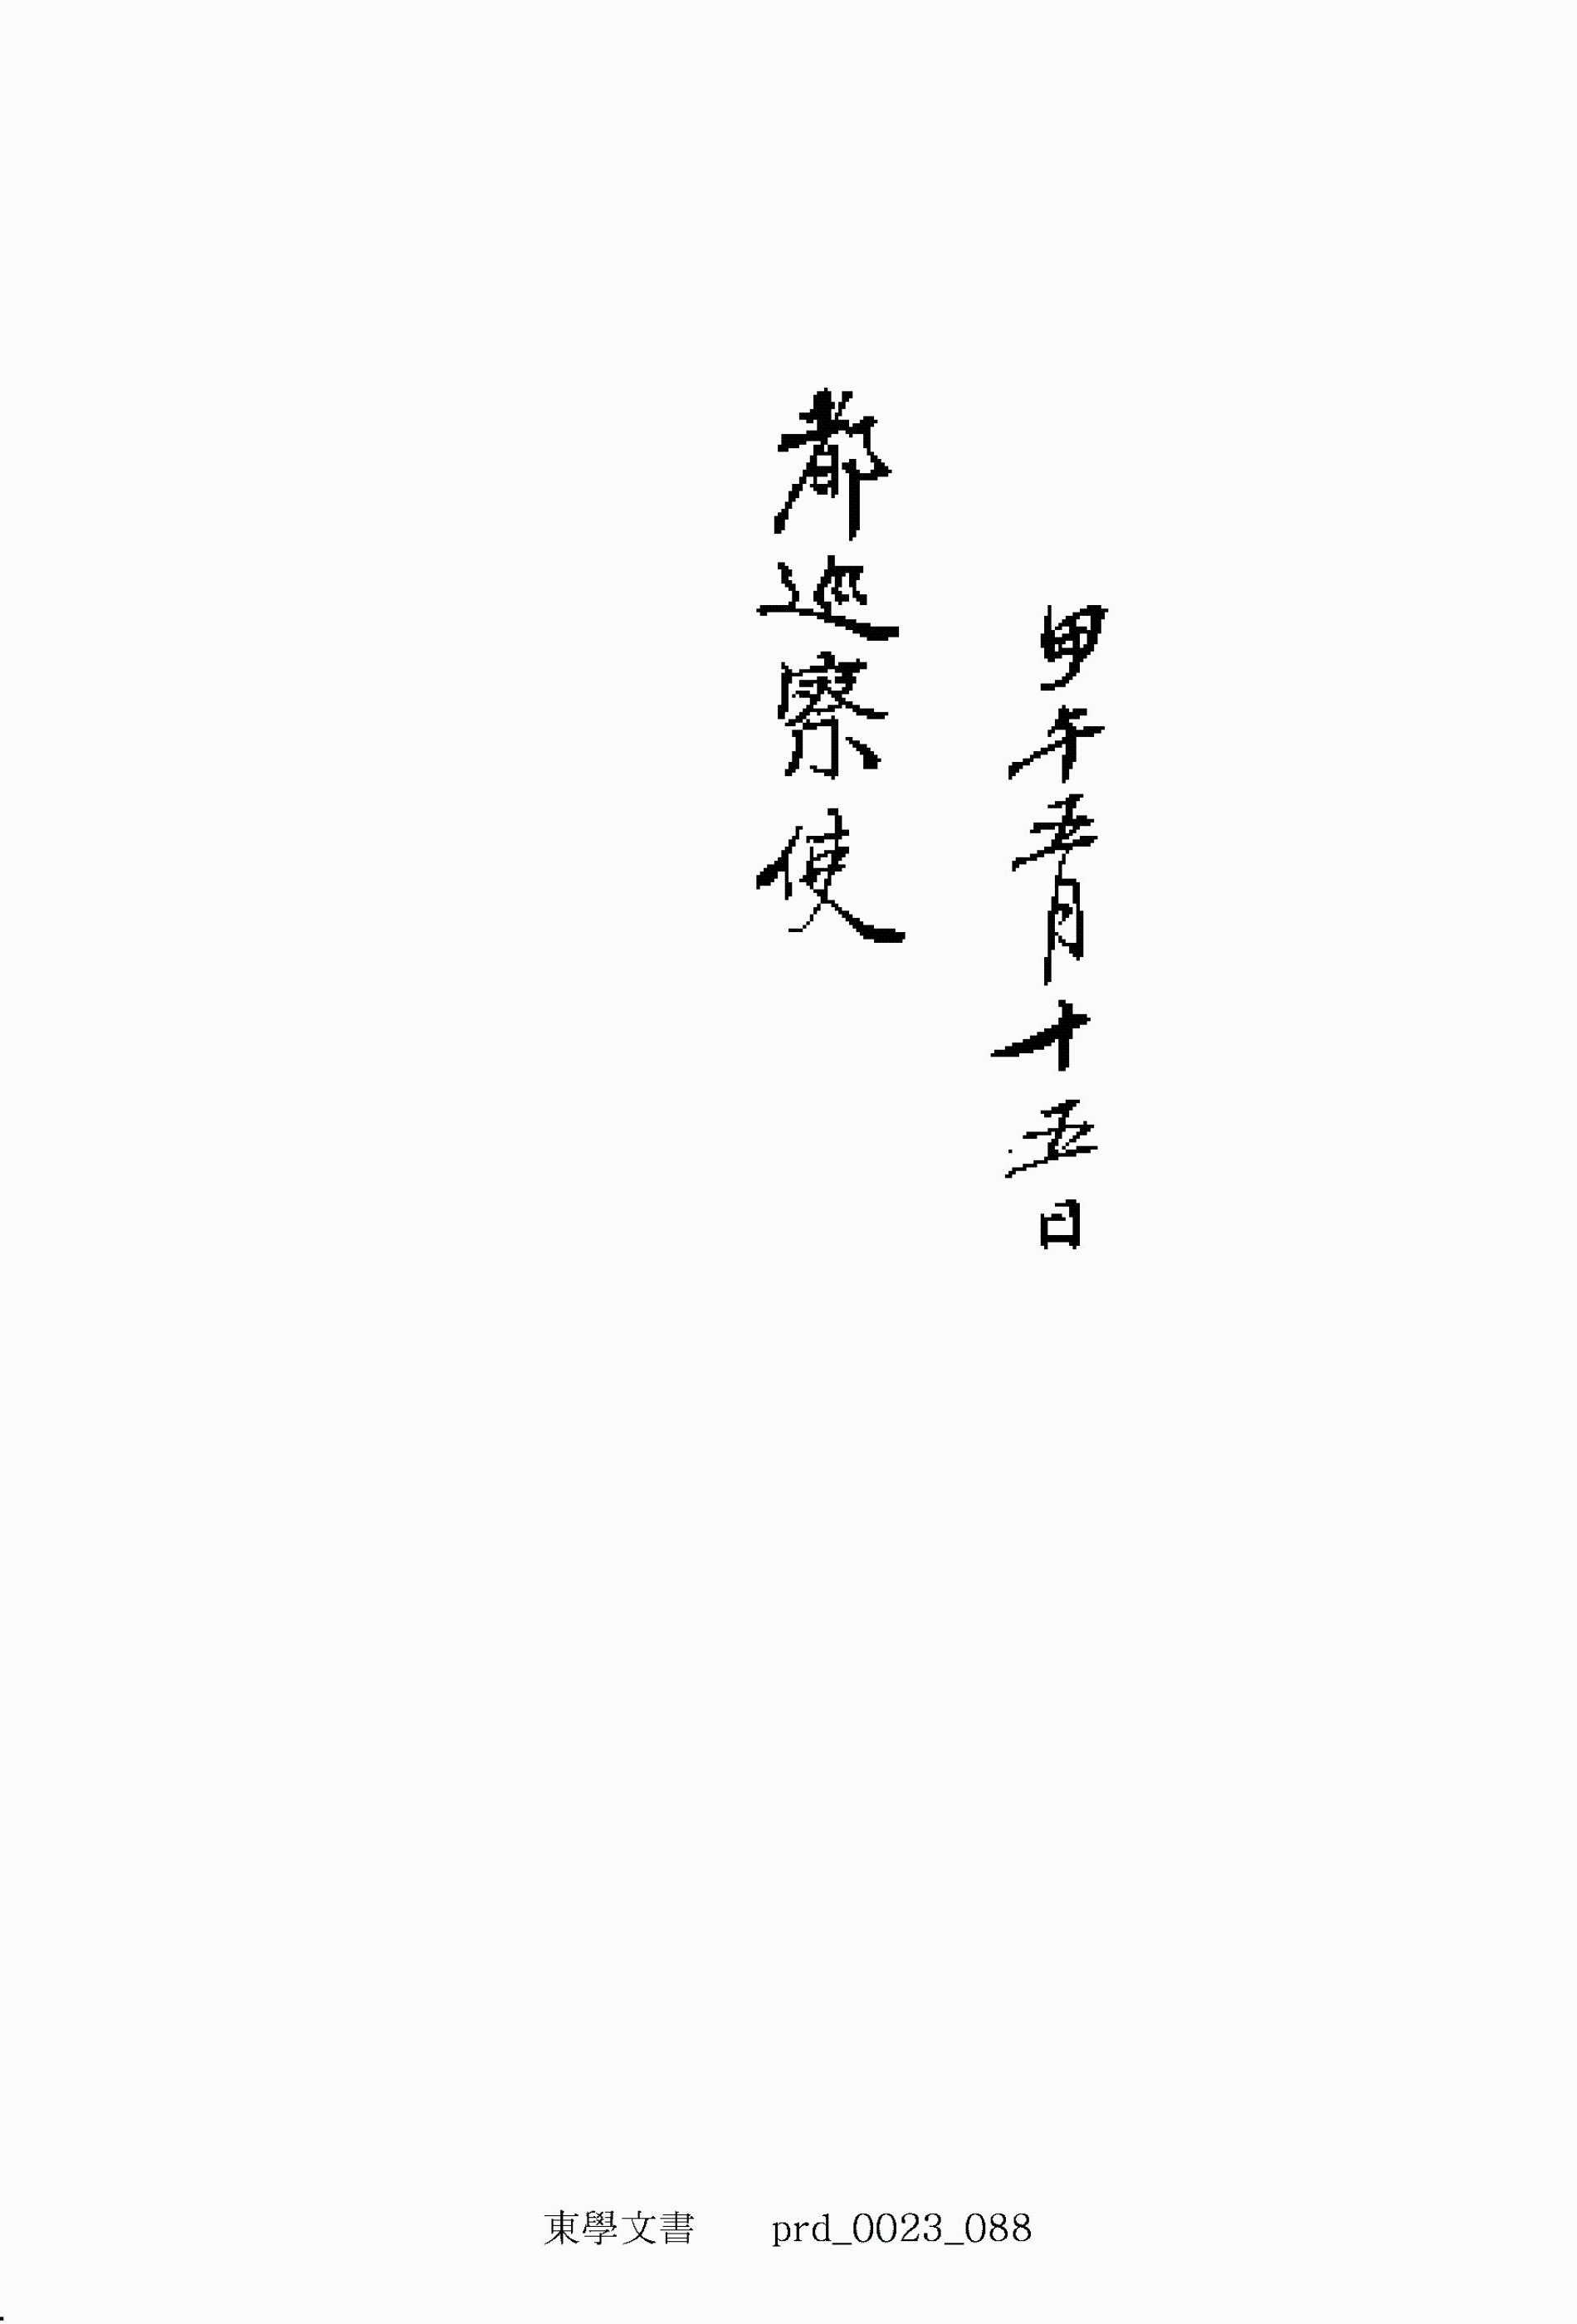 甲午五月十五日
都巡察使
東學文書 prd_0023_088